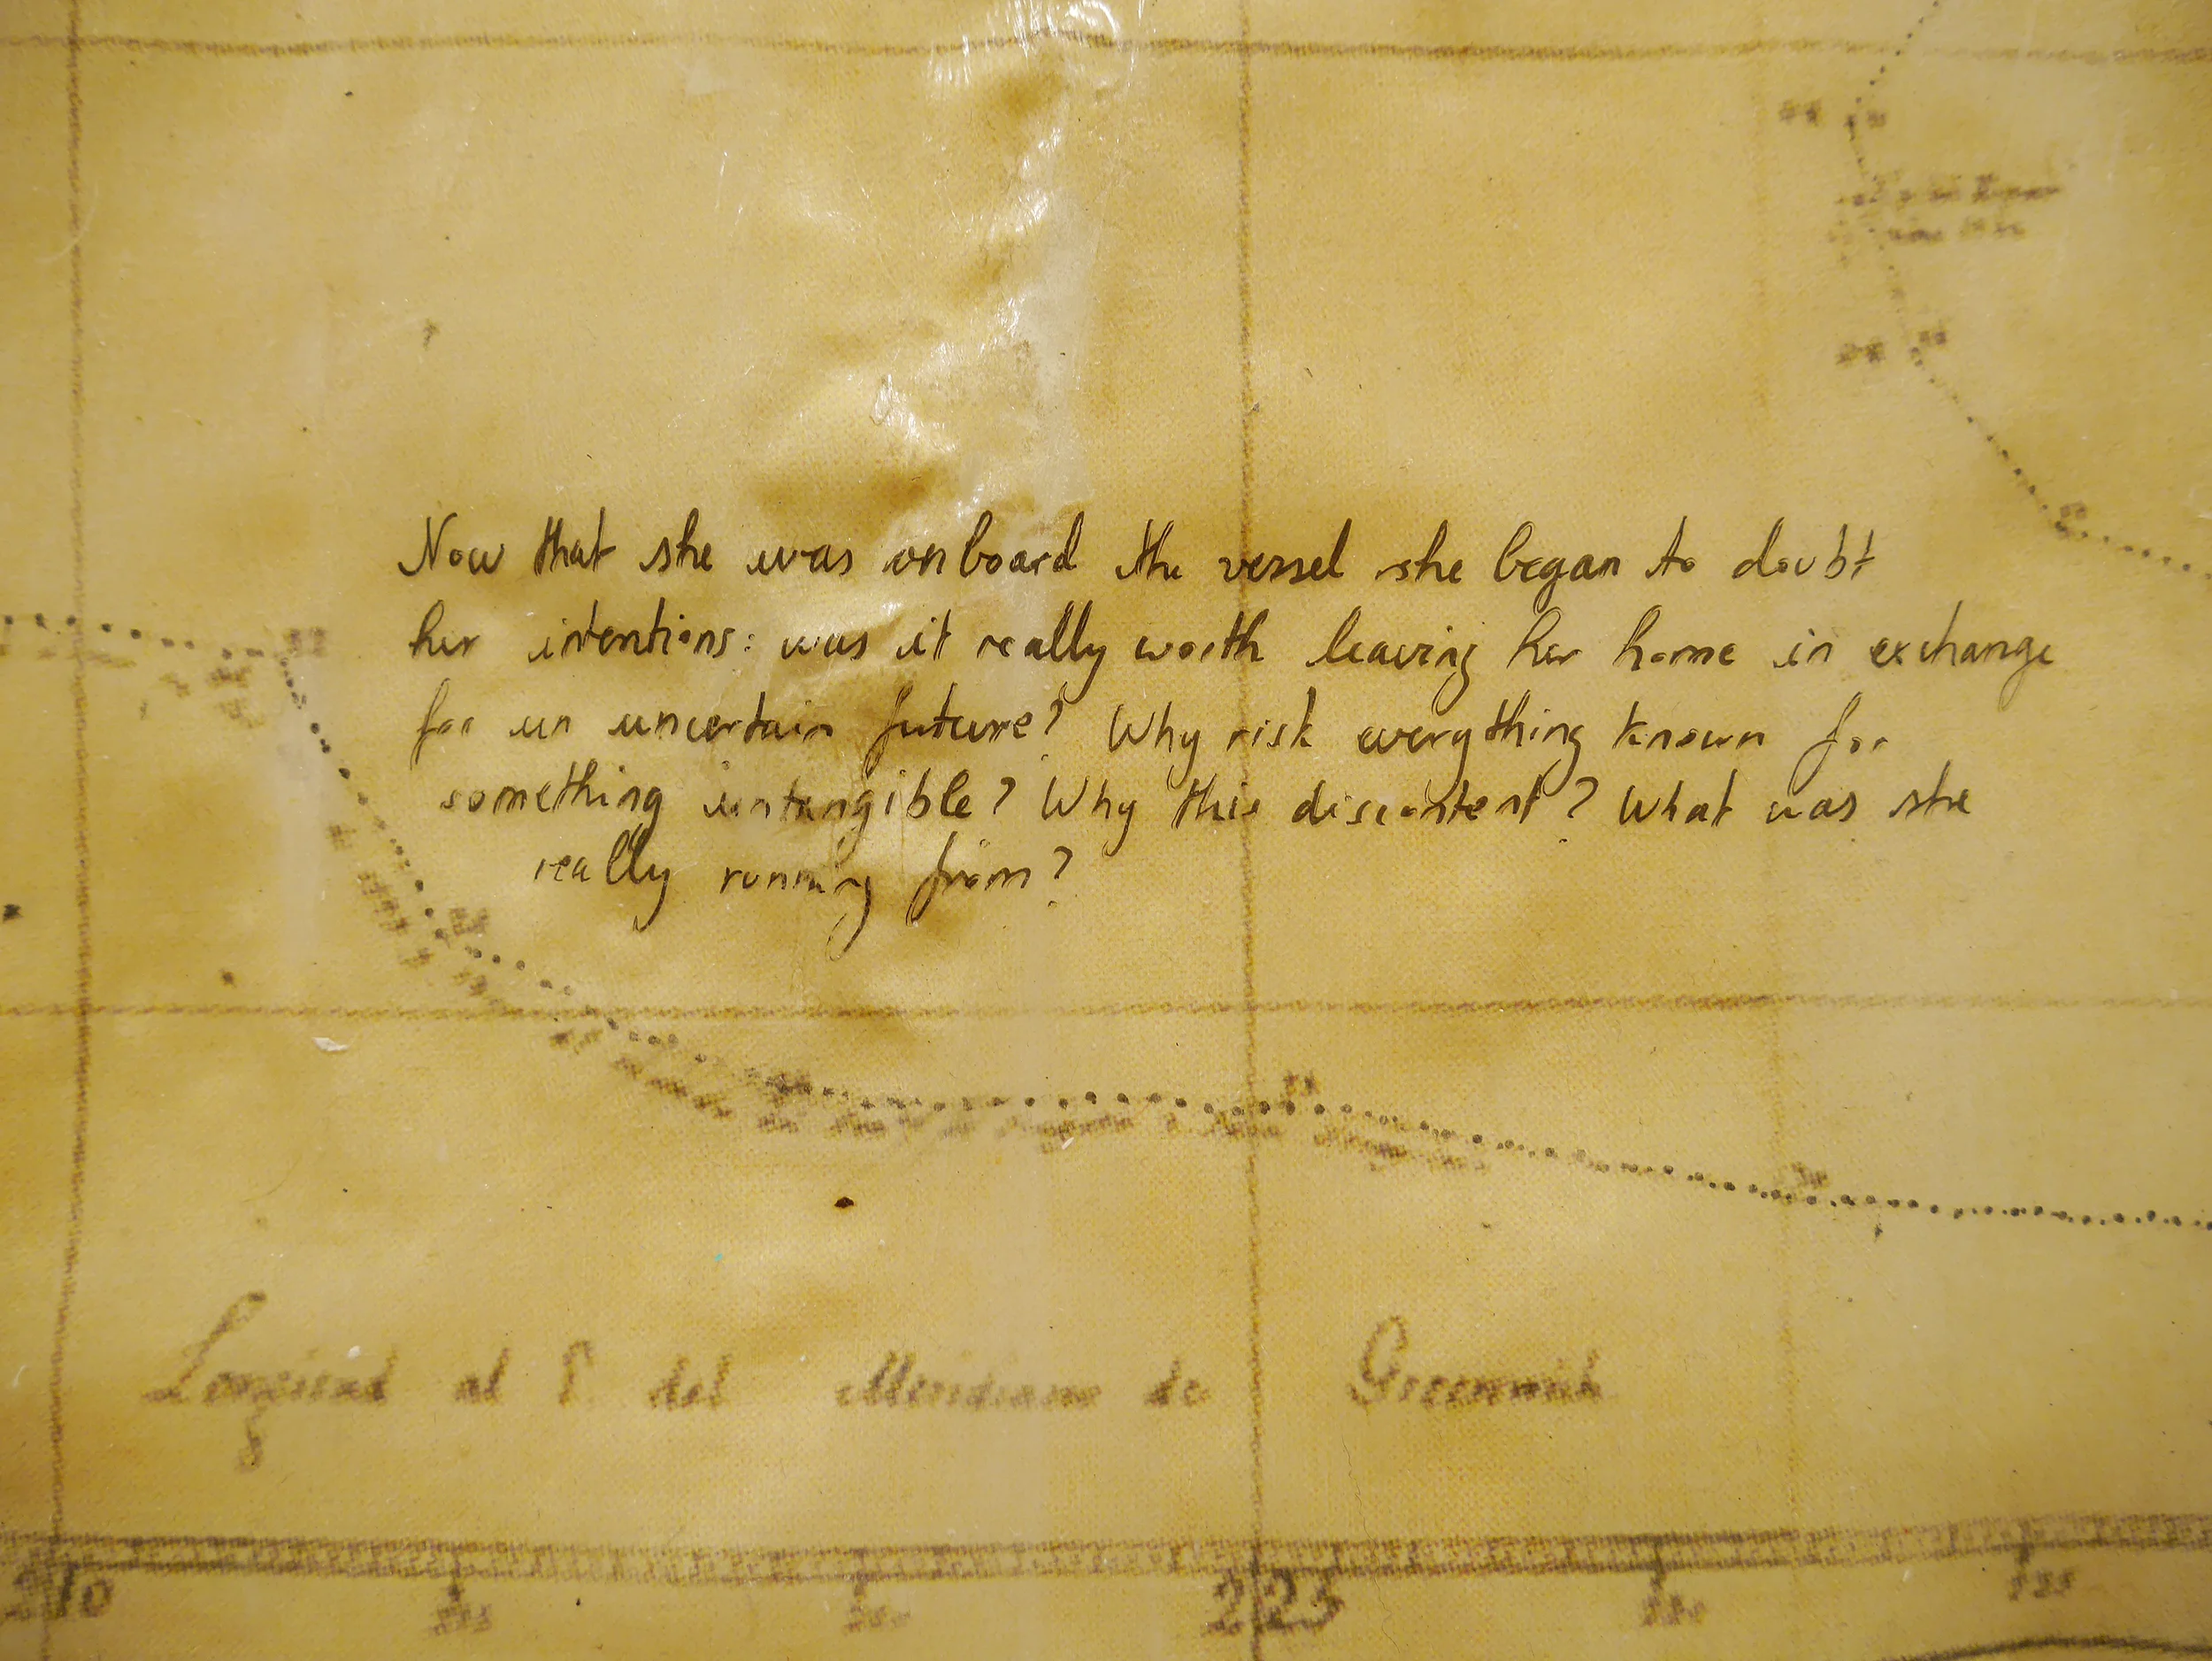 Now that she was onboard the vessel she began to doubt
her intentions: was it really worth leaving her home in exchange
for un uncertain future? Why risk everything known for
something untangible? Why this discontent? What was she
really running from?
al del Meridiano de Greenwich
210
225